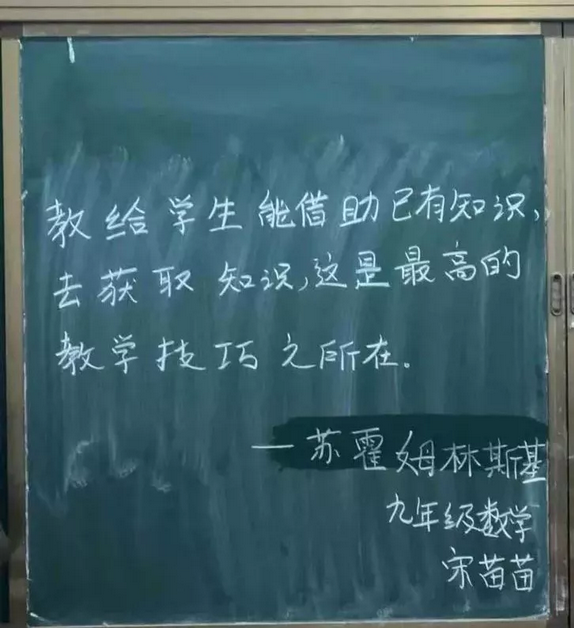 教给学生能借助已有知识,
去获取知识,这是最高的
教学技巧之所在。
—苏霍姆林斯基
九年级数学
宋苗苗